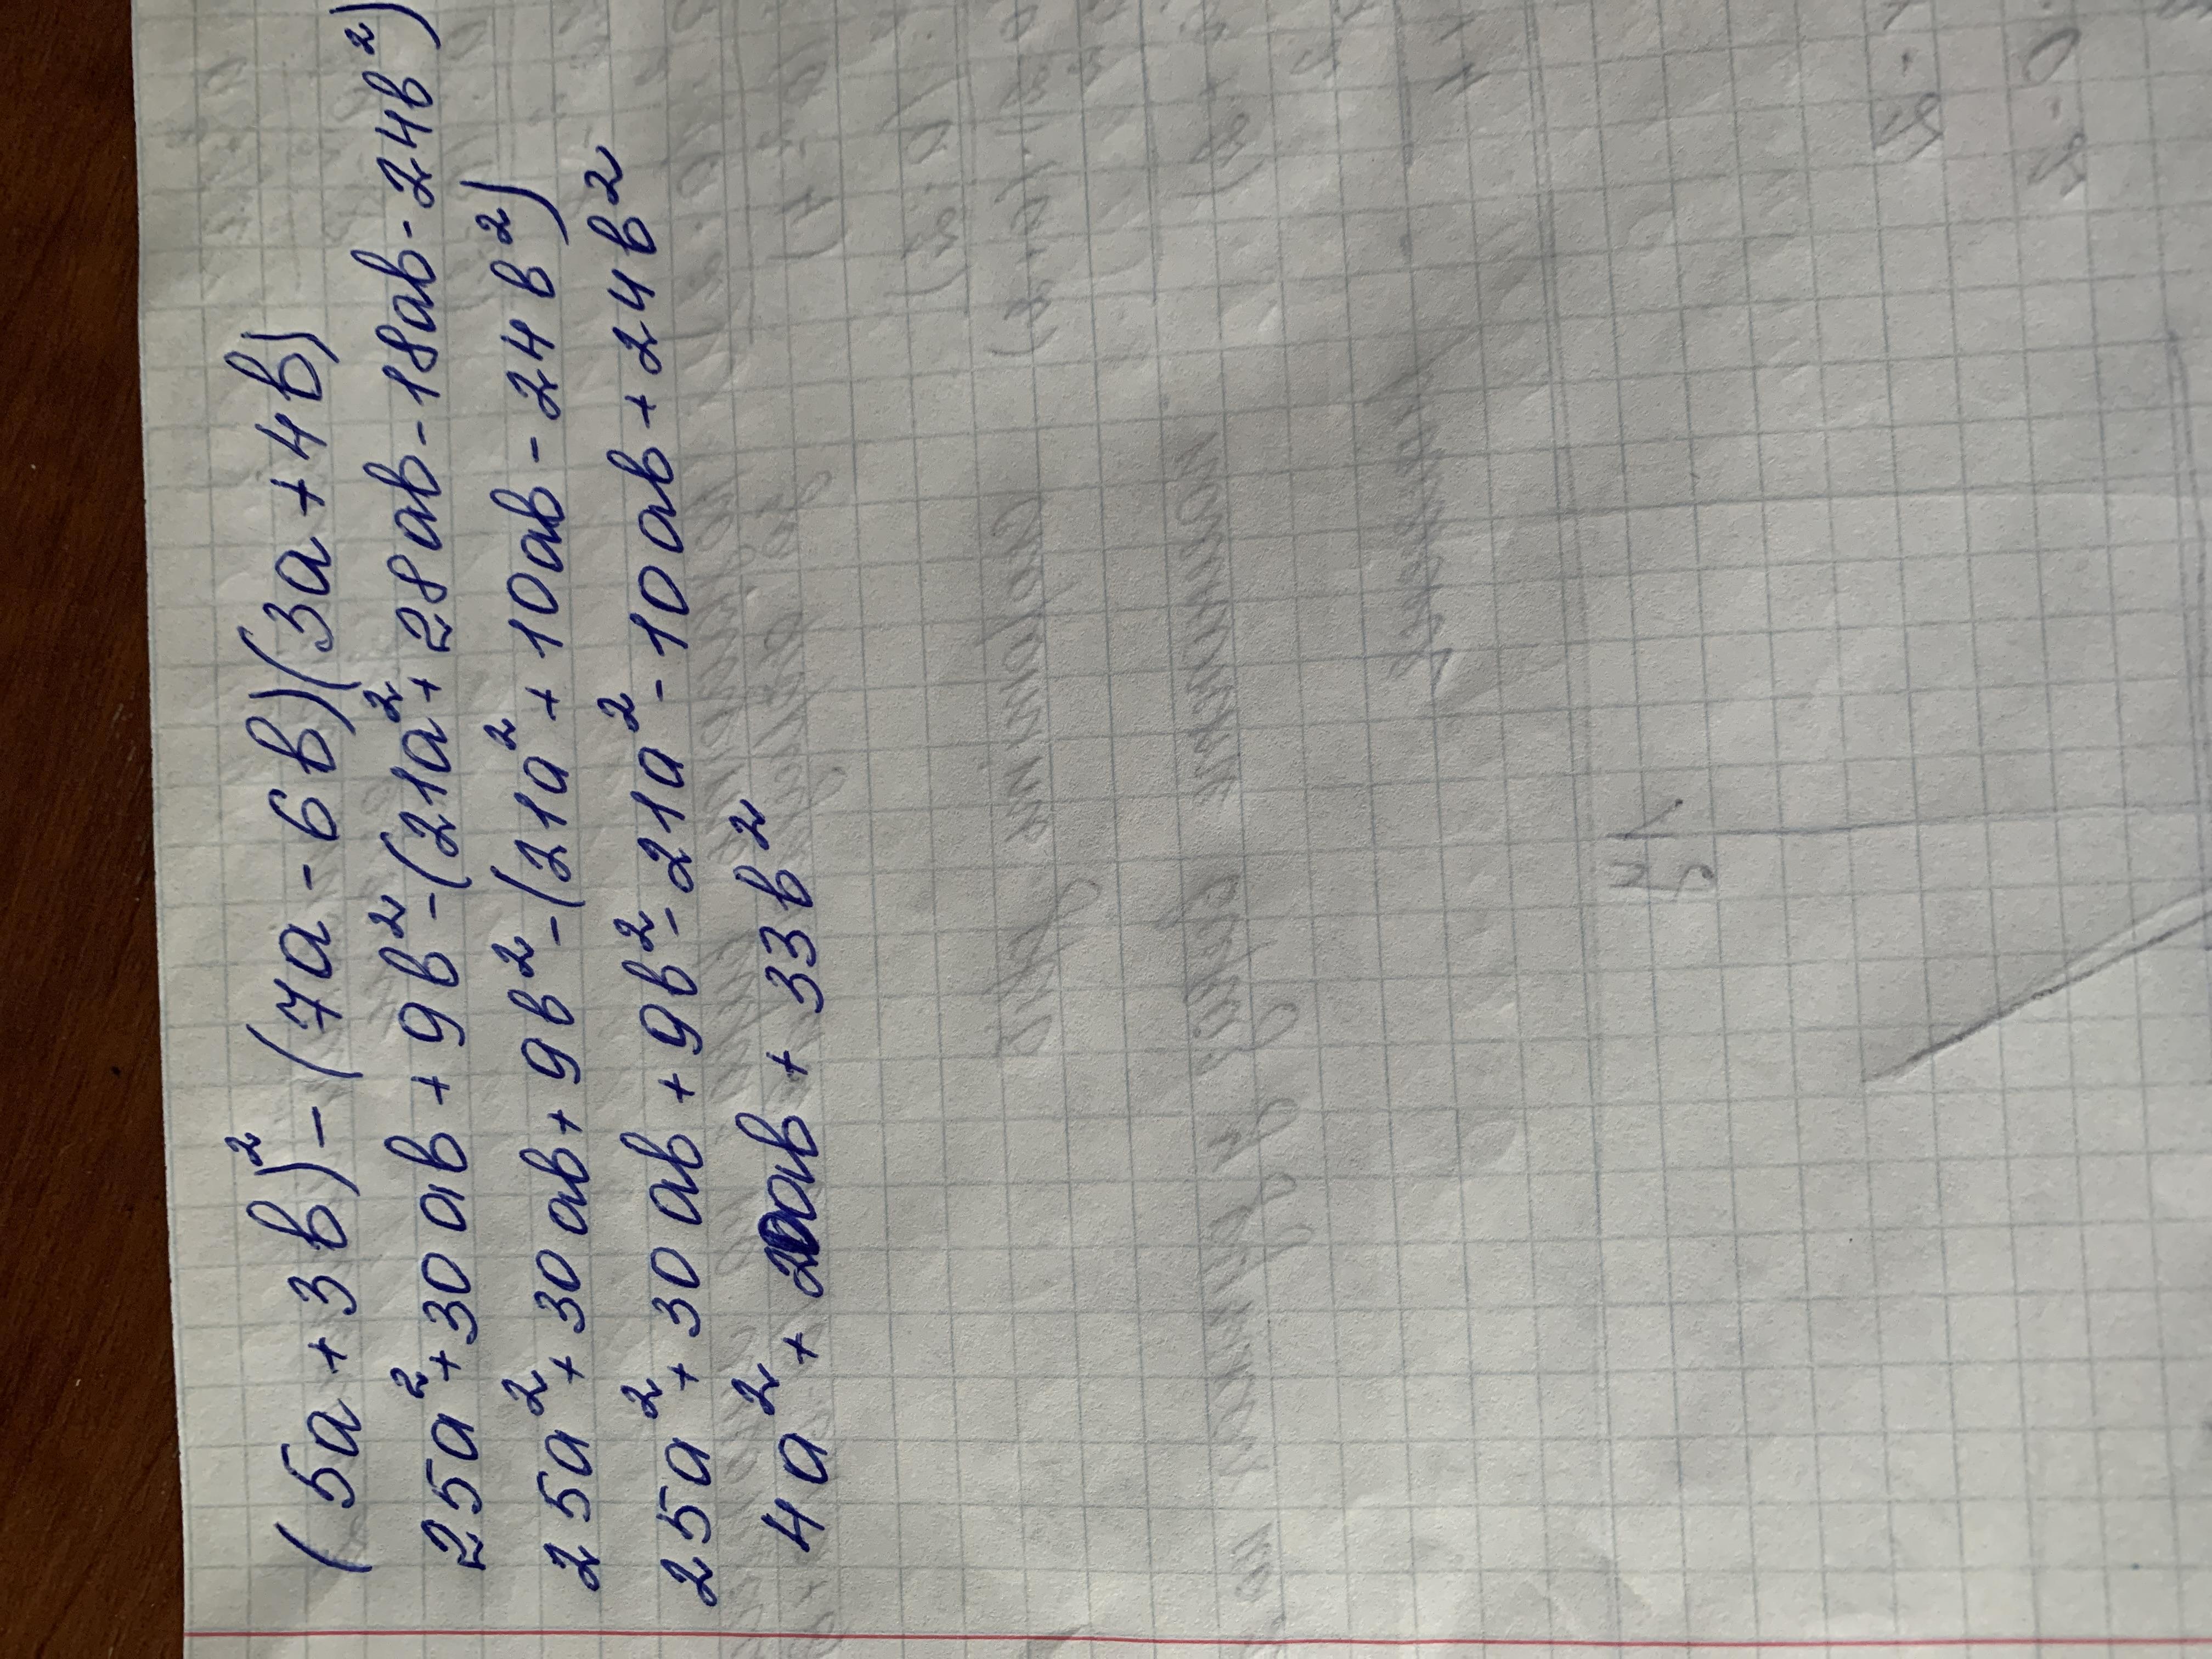 (5a + 3b)² - (7a - 6b)(3a + 4b)
25a² + 30ab + 9b² - (21a² + 28ab - 18ab - 24b²)
25a² + 30ab + 9b² - (21a² + 10ab - 24b²)
25a² + 30ab + 9b² - 21a² - 10ab + 24b²
4a² + 20ab + 33b²